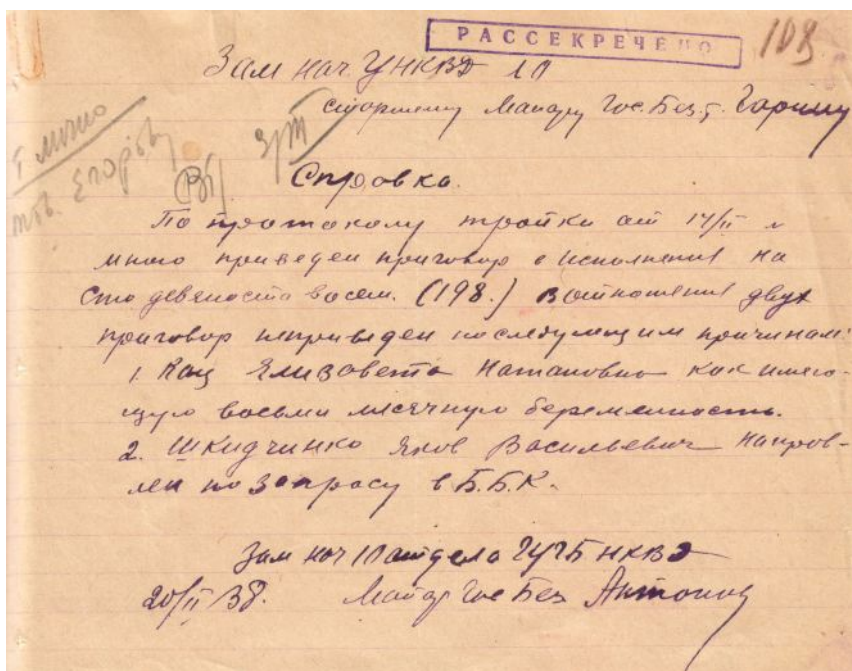 РАССЕКРЕЧЕНО
108
Зам нач УНКВД ЛО
старшему Майору Гос. Без. т. Гарину
т.
тов. Егорову
Справка.
По протоколу тройки от 17/II с
мною приведен приговор в исполнения на
сто девяносто восем. (198.) в отношения двух
приговор неприведен последующим причинам:
1. Кац Елизовета Натановна как имею-
щую восьми месячную беременность.
2. Шкидчинко Яков Васильевич направ-
лен по запросу в Б.Б.К.
Зам нач 10 отдела ГУГБ НКВД
20/II 38. Майор Гос Без